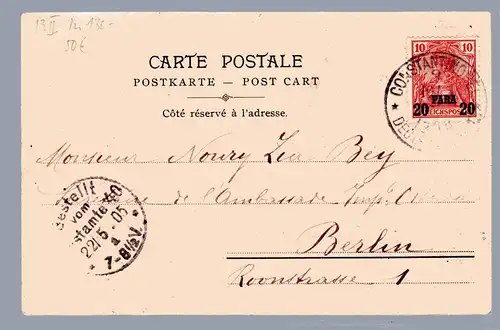 50€
CARTE POSTALE
POSTKARTE — POST CART
Côté réservé à l'adresse.
10 10
PARA
20 20
REICHSPOST
CONSTANTINOPEL
Monsieur Noury Zia Bey
de l'Ambassade Imp.
Berlin
Roonstrasse 1
Bestellt
vom
Postamte 40
22/5.05
7-8½V.